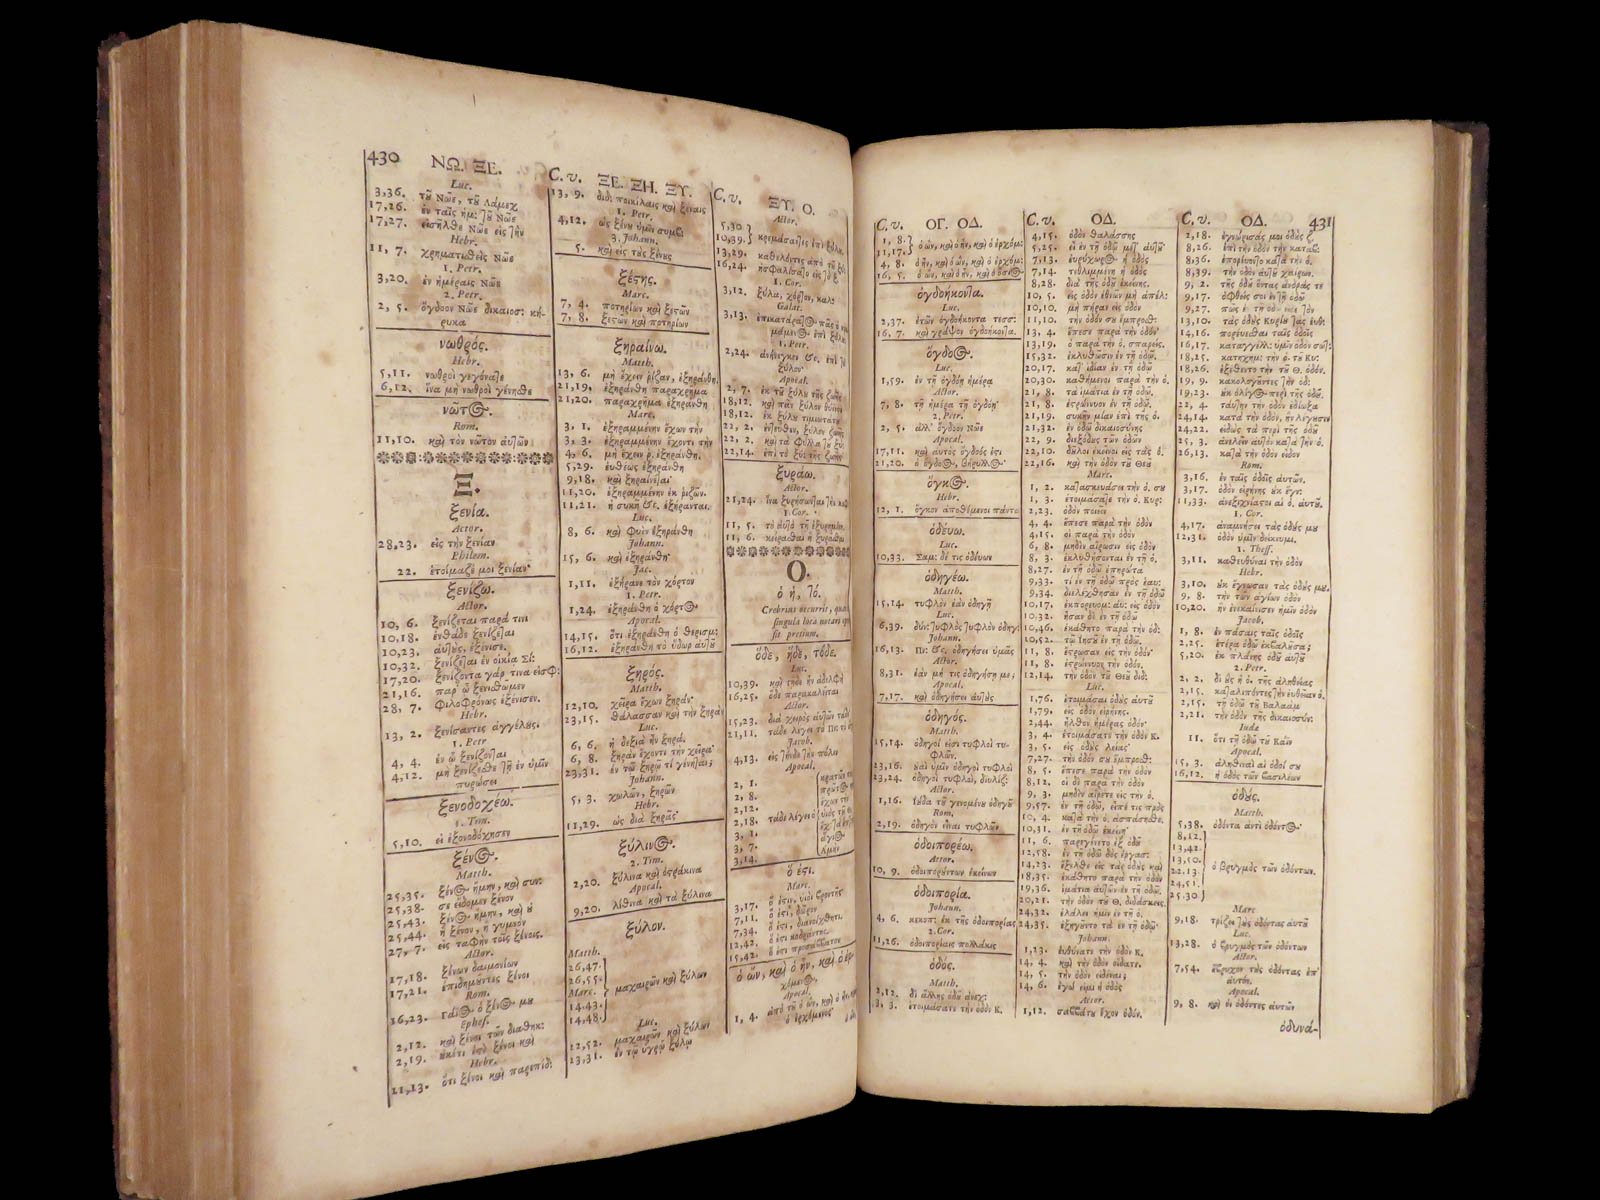 430 ΝΩ. ΞΕ.
Luc.
3,36. τȣ͂ Νῶε, τȣ͂ Λάμεχ
17,26. ἐν ταῖς ἡμ: Νῶε
17,27. εἰσῆλθε Νῶε εἰς τὴν
Hebr.
11, 7. χρηματισθεὶς Νῶε
1. Petr.
3,20. ἐν ἡμέραις Νῶε
2. Petr.
2, 5. ὄγδοον Νῶε δικαιοσ: κή-
ρυκα
νωθρός.
Hebr.
5,11. νωθροὶ γεγόναϯε
6,12. ἵνα μὴ νωθροὶ γένησθε
νῶτος.
Rom.
11,10. καὶ τὸν νῶτον αὐτῶν
Ξ.
ξενία.
Actor.
28,23. εἰς τὴν ξενίαν
Philem.
22. ἑτοίμαζέ μοι ξενίαν·
ξενίζω.
Actor.
10, 6. ξενίζεται παρά τινι
10,18. ἐνθάδε ξενίζεται
10,23. αὐτȣ̀ς, ἐξένισε.
10,32. ξενίζεται ἐν οἰκίᾳ Σί:
17,20. ξενίζοντα γάρ τινα εἰσφ:
21,16. παρ' ᾧ ξενισθῶμεν
28, 7. φιλοφρόνως ἐξένισεν.
Hebr.
13, 2. ξενίσαντες ἀγγέλȣς.
1. Petr
4, 4. ἐν ᾧ ξενίζονται
4,12. μὴ ξενίζεσθε τῇ ἐν ὑμῖν
πυρώσει
ξενοδοχέω.
1. Tim.
5,10. εἰ ἐξενοδόχησεν
ξένος.
Matth.
25,35. ξένος ἤμην, καὶ συν:
25,38. σε εἴδομεν ξένον
25,43. ξένος ἤμην, καὶ ȣ̓
25,44. ἢ ξένον, ἢ γυμνὸν
27, 7. εἰς ταφὴν τοῖς ξένοις.
Actor.
17,18. ξένων δαιμονίων
17,21. ἐπιδημȣ͂ντες ξένοι
Rom.
16,23. Γάϊος ὁ ξένος μȣ
Ephes.
2,12. καὶ ξένοι τῶν διαθηκ:
2,19. ȣ̓κέτι ἐστὲ ξένοι καὶ
Hebr.
11,13. ὅτι ξένοι καὶ παρεπίδ:
C. v. ΞΕ. ΞΗ. ΞΥ.
13, 9. διδ: ποικίλαις καὶ ξέναις
1. Petr.
4,12. ὡς ξένȣ ὑμῖν συμβ:
3. Johann.
5. καὶ εἰς τȣ̀ς ξένȣς
ξέστης.
Marc.
7, 4. ποτηρίων καὶ ξεστῶν
7, 8. ξεστῶν καὶ ποτηρίων
ξηραίνω.
Matth.
13, 6. μὴ ἔχειν ῥίζαν, ἐξηράνθη.
21,19. ἐξηράνθη παραχρῆμα
21,20. παραχρῆμα ἐξηράνθη
Marc.
3, 1. ἐξηραμμένην ἔχων τὴν
3, 3. ἐξηραμμένην ἔχοντι τὴν
4, 6. μὴ ἔχειν ῥ. ἐξηράνθη.
5,29. εὐθέως ἐξηράνθη
9,18. καὶ ξηραίνεται·
11,20. ἐξηραμμένην ἐκ ῥιζῶν.
11,21. ἡ συκῆ &c. ἐξήρανται.
Luc.
8, 6. καὶ φυὲν ἐξηράνθη
Johann.
15, 6. καὶ ἐξηράνθη·
Jac.
1,11. ἐξήρανε τὸν χόρτον
1. Petr.
1,24. ἐξηράνθη ὁ χόρτος
Apocal.
14,15. ὅτι ἐξηράνθη ὁ θερισμ:
16,12. ἐξηράνθη τὸ ὕδωρ αὐτȣ͂
ξηρός.
Matth.
12,10. χεῖρα ἔχων ξηράν·
23,15. θάλασσαν καὶ τὴν ξηρὰν
Luc.
6, 6. ἡ δεξιὰ ἦν ξηρά.
6, 8. ξηρὰν ἔχοντι τὴν χεῖρα·
23,31. ἐν τῷ ξηρῷ τί γένηται;
Johann.
5, 3. χωλῶν, ξηρῶν
Hebr.
11,29. ὡς διὰ ξηρᾶς·
ξύλινος.
2. Tim.
2,20. ξύλινα καὶ ὀστράκινα
Apocal.
9,20. λίθινα καὶ τὰ ξύλινα
ξύλον.
Matth.
26,47.
26,55. μαχαιρῶν καὶ ξύλων
Marc.
14,43.
14,48.
Luc.
22,52. μαχαιρῶν καὶ ξύλων
23,31. ἐν τῷ ὑγρῷ ξύλῳ
C. v. ΞΥ. Ο.
Actor.
5,30
10,39. κρεμάσαντες ἐπὶ ξύλȣ,
13,29. καθελόντες ἀπὸ τȣ͂ ξύλ
16,24. ἠσφαλίσατο εἰς τὸ ξ
1. Cor.
3,12. ξύλα, χόρτον, καλ:
Galat.
3,13. ἐπικατάρατος πᾶς ὁ
ἐπὶ ξύλȣ
1. Petr.
2,24. ἀνήνεγκεν &c. ἐπὶ τὸ
ξύλον·
Apocal.
2, 7. ἐκ τȣ͂ ξύλȣ τῆς ζωῆς
18,12. καὶ πᾶν ξύλον θύϊνον
18,12. ἐκ ξύλȣ τιμιωτάτȣ
22, 2. ἐντεῦθεν, ξύλον ζωῆς
22, 2. καὶ τὰ φύλλα τȣ͂ ξύ
22,14. ἐπὶ τὸ ξύλ τῆς ζωῆς
ξυράω.
Actor.
21,24. ἵνα ξυρήσωνται τὴν
1. Cor.
11, 5. τὸ αὐτὸ τῇ ἐξυρημέν.
11, 6. κείρασθαι ἢ ξυρᾶσθαι
Ο.
ὁ ἡ, τό.
Crebrius occurrit, quam
singula loca notare
sit pretium.
ὅδε, ἥδε, τόδε.
Luc.
10,39. καὶ τῇδε ἦν ἀδελφὴ
16,25. ὅδε παρακαλεῖται
Actor.
15,23. διὰ χειρὸς αὐτῶν τάδε
21,11. τάδε λέγει τὸ Πν: τὸ
Jacob.
4,13. εἰς τήνδε τὴν πόλιν
Apocal.
2, 1.
2, 8.
2,12.
2,18. τάδε λέγει ὁ
3, 1.
3, 7.
3,14.
ὅ ἐστι.
Marc.
3,17. ὅ ἐστιν, υἱοὶ βροντῆς
7,11. ὅ ἐστι, δῶρον
7,34. ὅ ἐστι, διανοίχθητι.
12,42. ὅ ἐστι κοδράντης.
15,42. ὅ ἐστι προσάββατον
ὁ ὢν, καὶ ὁ ἦν, καὶ ὁ ἐρ-
χόμενος,
Apocal.
1, 4. ἀπὸ τȣ͂ ὁ ὢν, καὶ ὁ ἦν,
ὁ ἐρχόμενος
C. v. ΟΓ. ΟΔ.
1, 8.
11,17. ὁ ὢν, καὶ ὁ ἦν, καὶ ὁ ἐρχόμ:
4, 8. ὁ ἦν, καὶ ὁ ὢν, καὶ ὁ ἐρχόμ:
16, 5. ὁ ὢν, καὶ ὁ ἦν, καὶ ὁ ὅσιος
ὀγδοήκοντα.
Luc.
2,37. ἐτῶν ὀγδοήκοντα τεσσ:
16, 7. καὶ γράψον ὀγδοήκοντα.
ὄγδοος.
Luc.
1,59. ἐν τῇ ὀγδόῃ ἡμέρᾳ
Actor.
7, 8. τῇ ἡμέρᾳ τῇ ὀγδόῃ·
2. Petr.
2, 5. ἀλλ' ὄγδοον Νῶε
Apocal.
17,11. καὶ αὐτὸς ὄγδοός ἐστι
21,20. ὁ ὄγδοος, βήρυλλος·
ὄγκος.
Hebr.
12, 1. ὄγκον ἀποθέμενοι πάντα
ὁδεύω.
Luc.
10,33. Σαμ: δέ τις ὁδεύων
ὁδηγέω.
Matth.
15,14. τυφλὸν ἐὰν ὁδηγῇ
Luc.
6,39. δύν: τυφλὸς τυφλὸν ὁδηγ:
Johann.
16,13. Πν: &c. ὁδηγήσει ὑμᾶς
Actor.
8,31. ἐὰν μή τις ὁδηγήσῃ με;
Apocal.
7,17. καὶ ὁδηγήσει αὐτȣ̀ς
ὁδηγός.
Matth.
15,14. ὁδηγοί εἰσι τυφλοὶ τυ-
φλῶν.
23,16. ȣ̓αὶ ὑμῖν ὁδηγοὶ τυφλοὶ
23,24. ὁδηγοὶ τυφλοί, διυλίζ:
Actor.
1,16. Ἰȣ́δα τȣ͂ γενομένȣ ὁδηγȣ͂
Rom.
2,19. ὁδηγὸν εἶναι τυφλῶν
ὁδοιπορέω.
Actor.
10, 9. ὁδοιπορȣ́ντων ἐκείνων
ὁδοιπορία.
Johann.
4, 6. κεκοπ: ἐκ τῆς ὁδοιπορίας
2. Cor.
11,26. ὁδοιπορίαις πολλάκις
ὁδός.
Matth.
2,12. δι' ἄλλης ὁδȣ͂ ἀνεχ:
3, 3. ἑτοιμάσατε τὴν ὁδὸν Κ.
C. v. ΟΔ.
4,15. ὁδὸν θαλάσσης
5,25. εἶ ἐν τῇ ὁδῷ μετ' αὐτȣ͂
7,13. εὐρύχωρος ἡ ὁδὸς
7,14. τεθλιμμένη ἡ ὁδὸς
8,28. διὰ τῆς ὁδȣ͂ ἐκείνης.
10, 5. εἰς ὁδὸν ἐθνῶν μὴ ἀπέλ:
10,10. μὴ πήραν εἰς ὁδὸν
11,10. τὴν ὁδόν σȣ ἔμπροσθ:
13, 4. ἔπεσε παρὰ τὴν ὁδόν·
13,19. ὁ παρὰ τὴν ὁ. σπαρείς.
15,32. ἐκλυθῶσιν ἐν τῇ ὁδῷ.
20,17. κατ' ἰδίαν ἐν τῇ ὁδῷ
20,30. καθήμενοι παρὰ τὴν ὁ.
21, 8. τὰ ἱμάτια ἐν τῇ ὁδῷ.
21, 8. ἐστρώννυον ἐν τῇ ὁδῷ.
21,19. συκῆν μίαν ἐπὶ τῆς ὁ.
21,32. ἐν ὁδῷ δικαιοσύνης
22, 9. διεξόδȣς τῶν ὁδῶν
22,10. δȣ͂λοι ἐκεῖνοι εἰς τὰς ὁ.
22,16. καὶ τὴν ὁδὸν τȣ͂ Θεȣ͂
Marc.
1, 2. κατασκευάσει τὴν ὁ. σȣ
1, 3. ἑτοιμάσατε τὴν ὁ. Κυρ:
2,23. ὁδὸν ποιεῖν
4, 4. ἔπεσε παρὰ τὴν ὁδὸν
4,15. οἱ παρὰ τὴν ὁδὸν
6, 8. μηδὲν αἴρωσιν εἰς ὁδὸν
8, 3. ἐκλυθήσονται ἐν τῇ ὁ.
8,27. ἐν τῇ ὁδῷ ἐπηρώτα
9,33. τί ἐν τῇ ὁδῷ πρὸς ἑαυ:
9,34. διελέχθησαν ἐν τῇ ὁδῷ
10,17. ἐκπορευομ: αὐ: εἰς ὁδὸν
10,32. ἦσαν δὲ ἐν τῇ ὁδῷ
10,46. ἐκάθητο παρὰ τὴν ὁδ:
10,52. τῷ Ἰησȣ͂ ἐν τῇ ὁδῷ.
11, 8. ἔστρωσαν εἰς τὴν ὁδόν·
11, 8. ἐστρώννυον τὴν ὁδόν.
12,14. τὴν ὁδὸν τȣ͂ Θεȣ͂ διδ:
Luc.
1,76. ἑτοιμάσαι ὁδȣ̀ς αὐτȣ͂
1,79. εἰς ὁδὸν εἰρήνης.
2,44. ἦλθον ἡμέρας ὁδόν·
3, 4. ἑτοιμάσατε τὴν ὁδὸν Κ.
3, 5. εἰς ὁδȣ̀ς λείας·
7,27. τὴν ὁδόν σȣ ἔμπροσθ:
8, 5. ἔπεσε παρὰ τὴν ὁδὸν
8,12. οἱ δὲ παρὰ τὴν ὁδὸν
9, 3. μηδὲν αἴρετε εἰς τὴν ὁ.
9,57. ἐν τῇ ὁδῷ, εἶπέ τις πρὸς
10, 4. κατὰ τὴν ὁ. ἀσπάσησθε.
10,31. ἐν τῇ ὁδῷ ἐκείνῃ·
11, 6. παρεγένετο ἐξ ὁδȣ͂
12,58. ἐν τῇ ὁδῷ δὸς ἐργασ:
14,23. ἔξελθε εἰς τὰς ὁδȣ̀ς καὶ
18,35. ἐκάθητο παρὰ τὴν ὁδὸν
19,36. ἱμάτια αὐτῶν ἐν τῇ ὁδῷ.
20,21. τὴν ὁδὸν τȣ͂ Θ. διδάσκεις.
24,32. ἐλάλει ἡμῖν ἐν τῇ ὁ.
24,35. ἐξηγȣ͂ντο τὰ ἐν τῇ ὁδῷ.
Johann.
1,23. εὐθύνατε τὴν ὁδὸν Κ.
14, 4. καὶ τὴν ὁδὸν οἴδατε.
14, 5. τὴν ὁδὸν εἰδέναι;
14, 6. ἐγώ εἰμι ἡ ὁδὸς
Actor.
1,12. σαββάτȣ ἔχον ὁδόν.
C. v. ΟΔ. 431
2,18. ἐγνώρισάς μοι ὁδȣ̀ς ζ.
8,26. ἐπὶ τὴν ὁδὸν τὴν καταβ:
8,36. ἐπορεύοντο κατὰ τὴν ὁ.
8,39. τὴν ὁδὸν αὐτȣ͂ χαίρων.
9, 2. τῆς ὁδȣ͂ ὄντας ἄνδρας τε
9,17. ὀφθείς σοι ἐν τῇ ὁδῷ
9,27. πῶς ἐν τῇ ὁδῷ εἶδε τὸν
13,10. τὰς ὁδȣ̀ς Κυρίȣ τὰς εὐθ:
14,16. πορεύεσθαι ταῖς ὁδοῖς
16,17. καταγγέλλ: ὑμῖν ὁδὸν σωτ:
18,25. κατηχημ: τὴν ὁ. τȣ͂ Κυ:
18,26. ἐξέθεντο τὴν τȣ͂ Θ. ὁδόν.
19, 9. κακολογȣ͂ντες τὴν ὁδ:
19,23. ȣ̓κ ὀλίγος περὶ τῆς ὁδȣ͂.
22, 4. ταύτην τὴν ὁδὸν ἐδίωξα
24,14. κατὰ τὴν ὁδόν, ἣν λέγȣσιν
24,22. εἰδὼς τὰ περὶ τῆς ὁδȣ͂
25, 3. ἀνελεῖν αὐτὸν κατὰ τὴν ὁ.
26,13. κατὰ τὴν ὁδὸν εἶδον
Rom.
3,16. ἐν ταῖς ὁδοῖς αὐτῶν.
3,17. ὁδὸν εἰρήνης ȣ̓κ ἔγν:
11,33. ἀνεξιχνίαστοι αἱ ὁ. αὐτȣ͂.
1. Cor.
4,17. ἀναμνήσει τὰς ὁδȣ́ς μȣ
12,31. ὁδὸν ὑμῖν δείκνυμι.
1. Theff.
3,11. κατευθύναι τὴν ὁδὸν
Hebr.
3,10. ȣ̓κ ἔγνωσαν τὰς ὁδȣ́ς μȣ.
9, 8. τὴν τῶν ἁγίων ὁδὸν
10,20. ἣν ἐνεκαίνισεν ἡμῖν ὁδὸν
Jacob.
1, 8. ἐν πάσαις ταῖς ὁδοῖς
2,25. ἑτέρᾳ ὁδῷ ἐκβαλȣ͂σα;
5,20. ἐκ πλάνης ὁδȣ͂ αὐτȣ͂
2. Petr.
2, 2. δι' ȣ̔̀ς ἡ ὁ. τῆς ἀληθείας
2,15. καταλιπόντες τὴν εὐθεῖαν ὁ.
2,15. τῇ ὁδῷ τȣ͂ Βαλαὰμ
2,21. τὴν ὁδὸν τῆς δικαιοσύν:
Judæ
11. ὅτι τῇ ὁδῷ τȣ͂ Κάϊν
Apocal.
15, 3. ἀληθιναὶ αἱ ὁδοί σȣ
16,12. ἡ ὁδὸς τῶν βασιλέων
ὀδȣ́ς.
Matth.
5,38. ὀδόντα ἀντὶ ὀδόντος·
8,12.
13,42.
13,50. ὁ βρυγμὸς τῶν ὀδόντων.
22,13.
24,51.
25,30.
Marc
9,18. τρίζει τȣ̀ς ὀδόντας αὐτȣ͂
Luc.
13,28. ὁ βρυγμὸς τῶν ὀδόντων
Actor.
7,54. ἔβρυχον τȣ̀ς ὀδόντας ἐπ'
αὐτόν.
Apocal.
9, 8. καὶ οἱ ὀδόντες αὐτῶν
ὀδυνά-